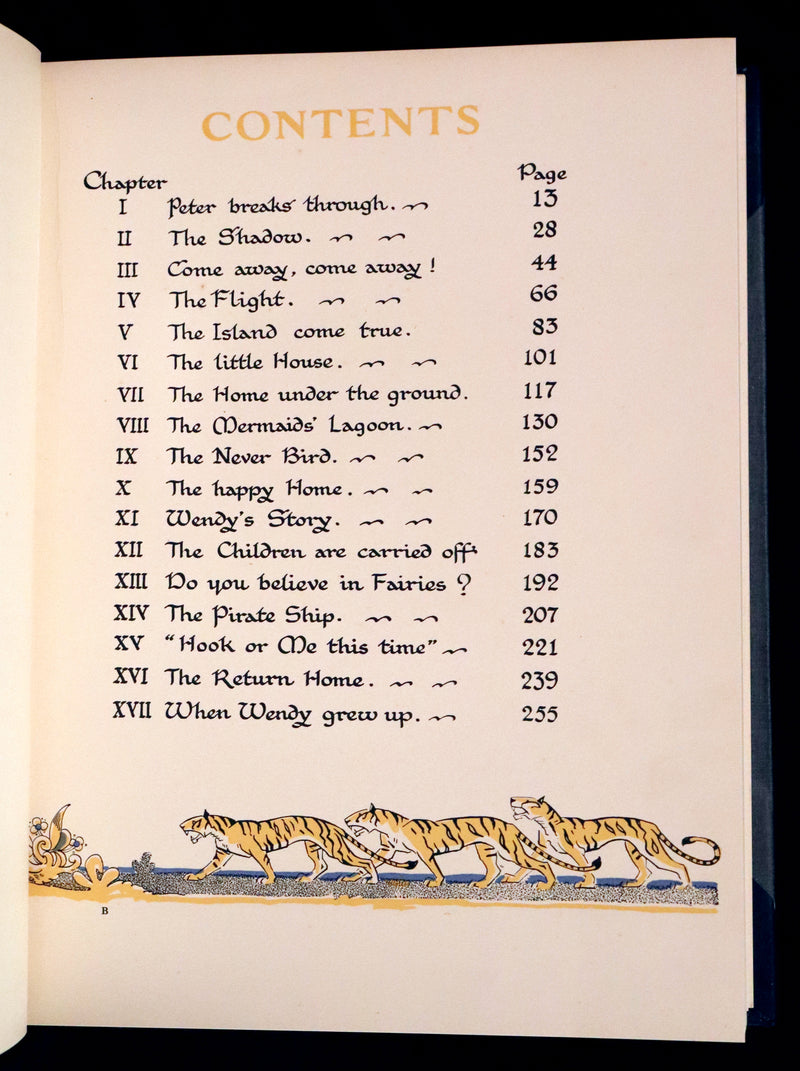 CONTENTS
Chapter Page
I Peter breaks through. 13
II The Shadow. 28
III Come away, come away! 44
IV The Flight. 66
V The Island come true. 83
VI The little House. 101
VII The Home under the ground. 117
VIII The Mermaids' Lagoon. 130
IX The Never Bird. 152
X The happy Home. 159
XI Wendy's Story. 170
XII The Children are carried off. 183
XIII Do you believe in Fairies? 192
XIV The Pirate Ship. 207
XV "Hook or Me this time" 221
XVI The Return Home. 239
XVII When Wendy grew up. 255
B